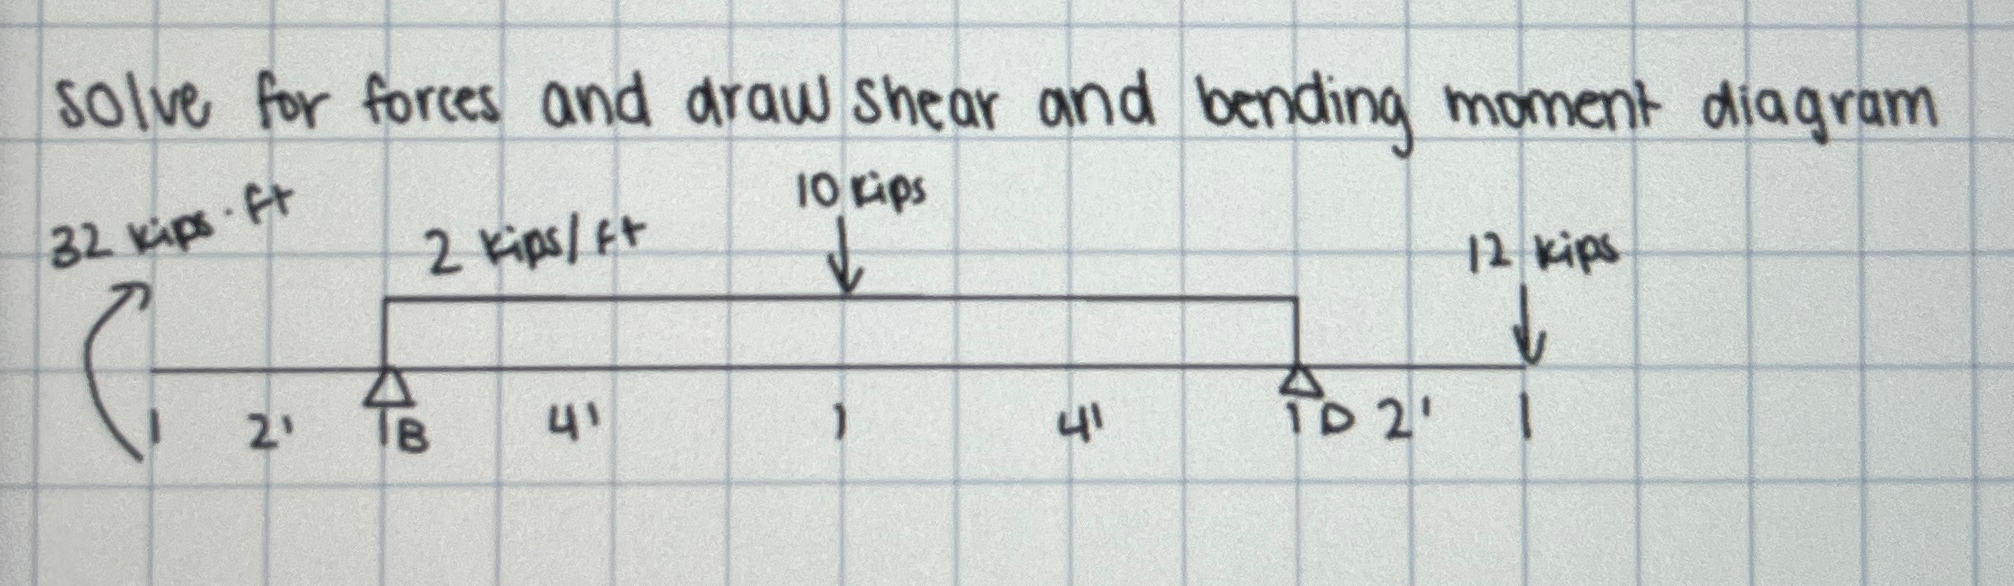 solve for forces and draw shear and bending moment diagram
10 kips
32 kips·ft
2 kips/ft
12 kips
2' B 4' 4' D 2'